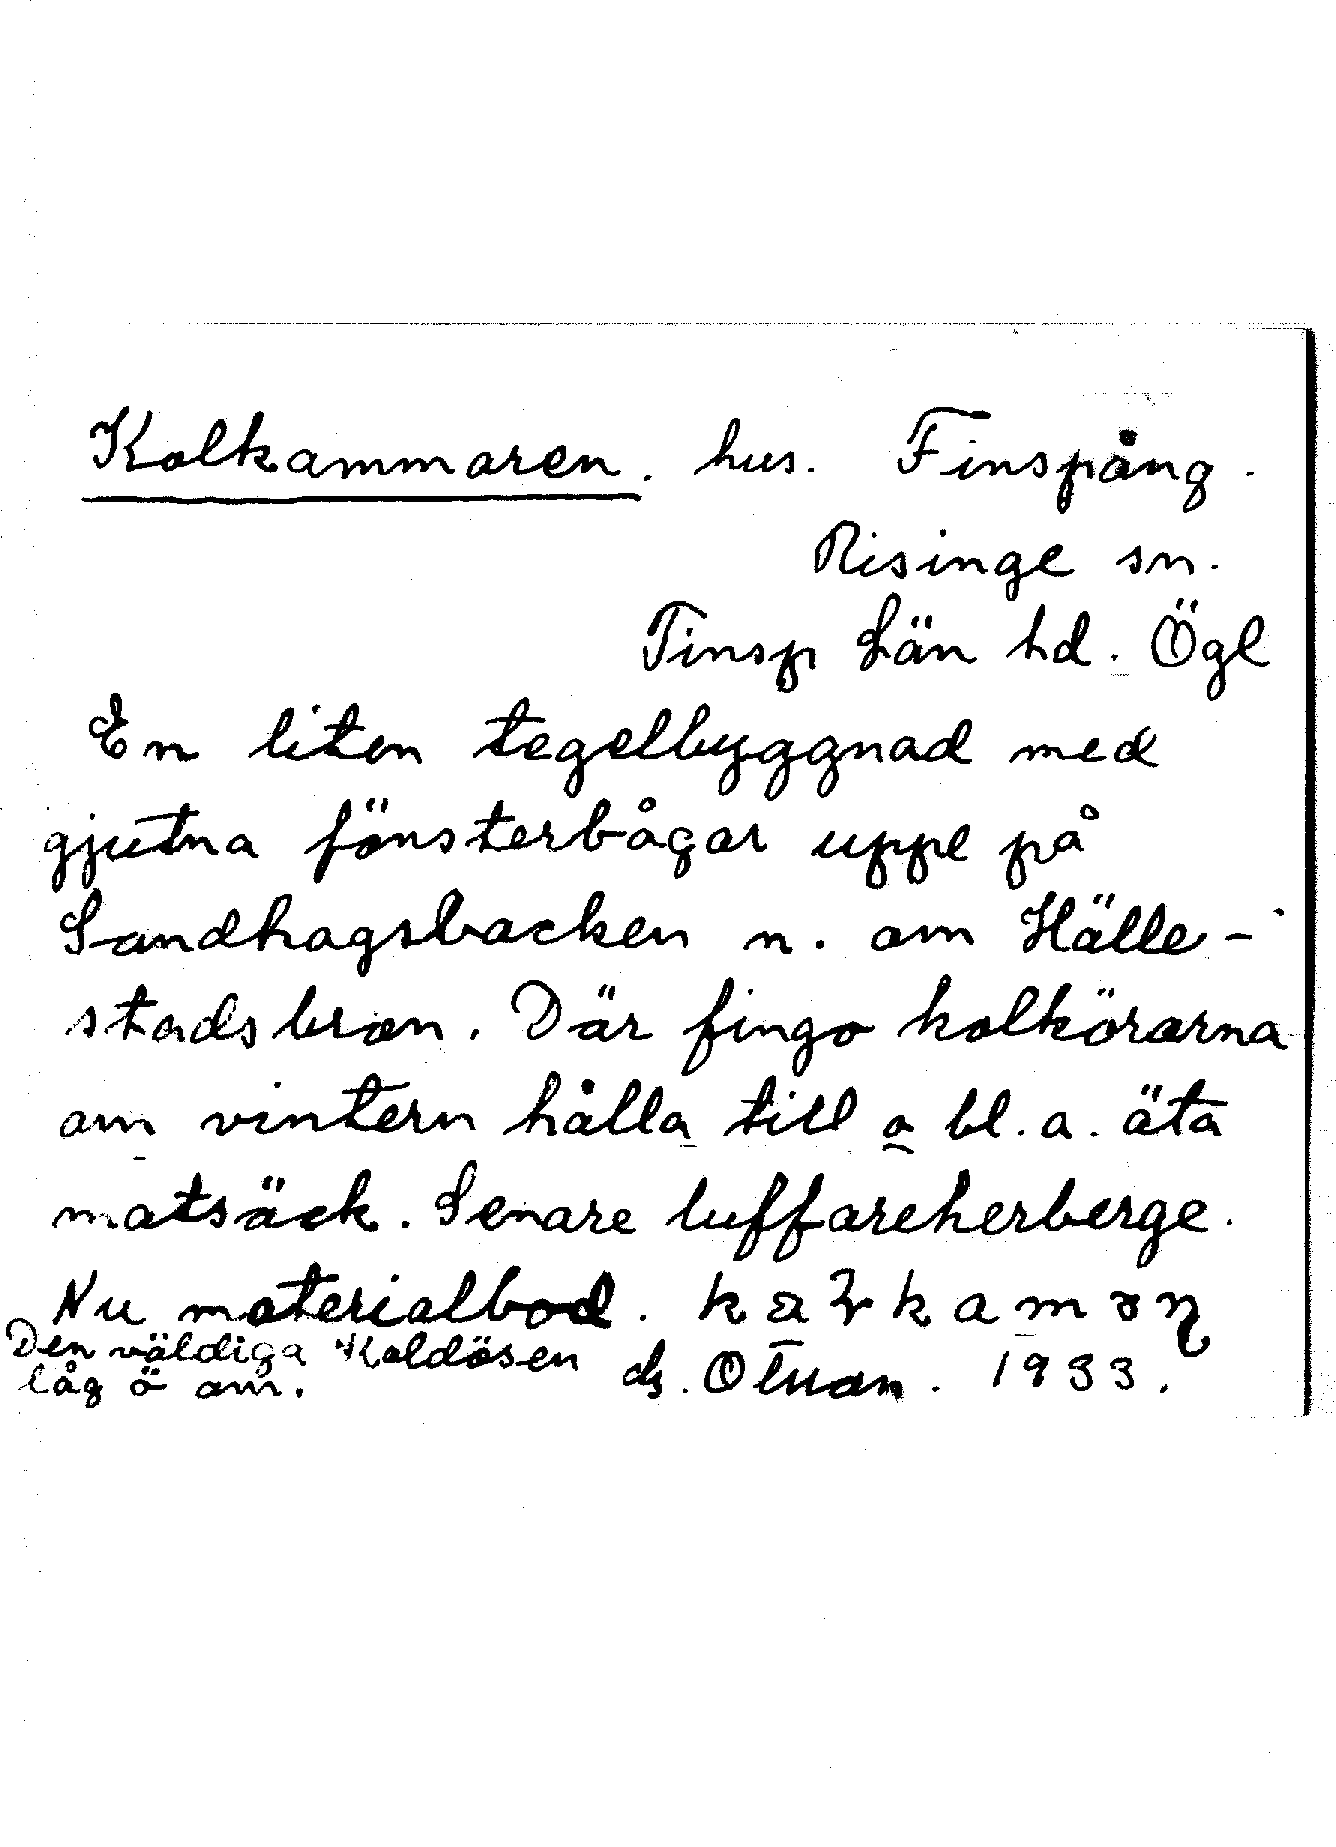 Kolkammaren. hus. Finspång.
Risinge sn.
Finsp Län hd. Ögl
En liten tegelbyggnad med
gjutna fönsterbågar uppe på
Sandhagsbacken n. om Hälle-
stadsbron. Där fingo kolkörarna
om vintern hålla till o bl. a. äta
matsäck. Senare luffareherberge.
Nu materialbod.
Den väldiga Koldösen
låg ö om.
1933.